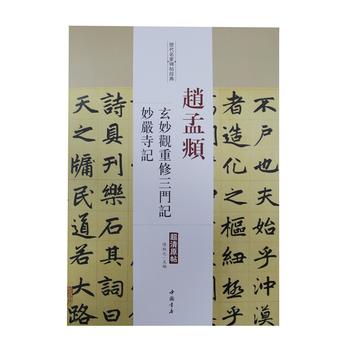 不戶也夫始乎沖漠
者造化之樞紐極乎
歷代名家碑帖經典
趙孟頫
玄妙觀重修三門記
妙嚴寺記
超清原帖
主編
中國書店
詩具刊樂石其詞曰
天之牖民道若大路